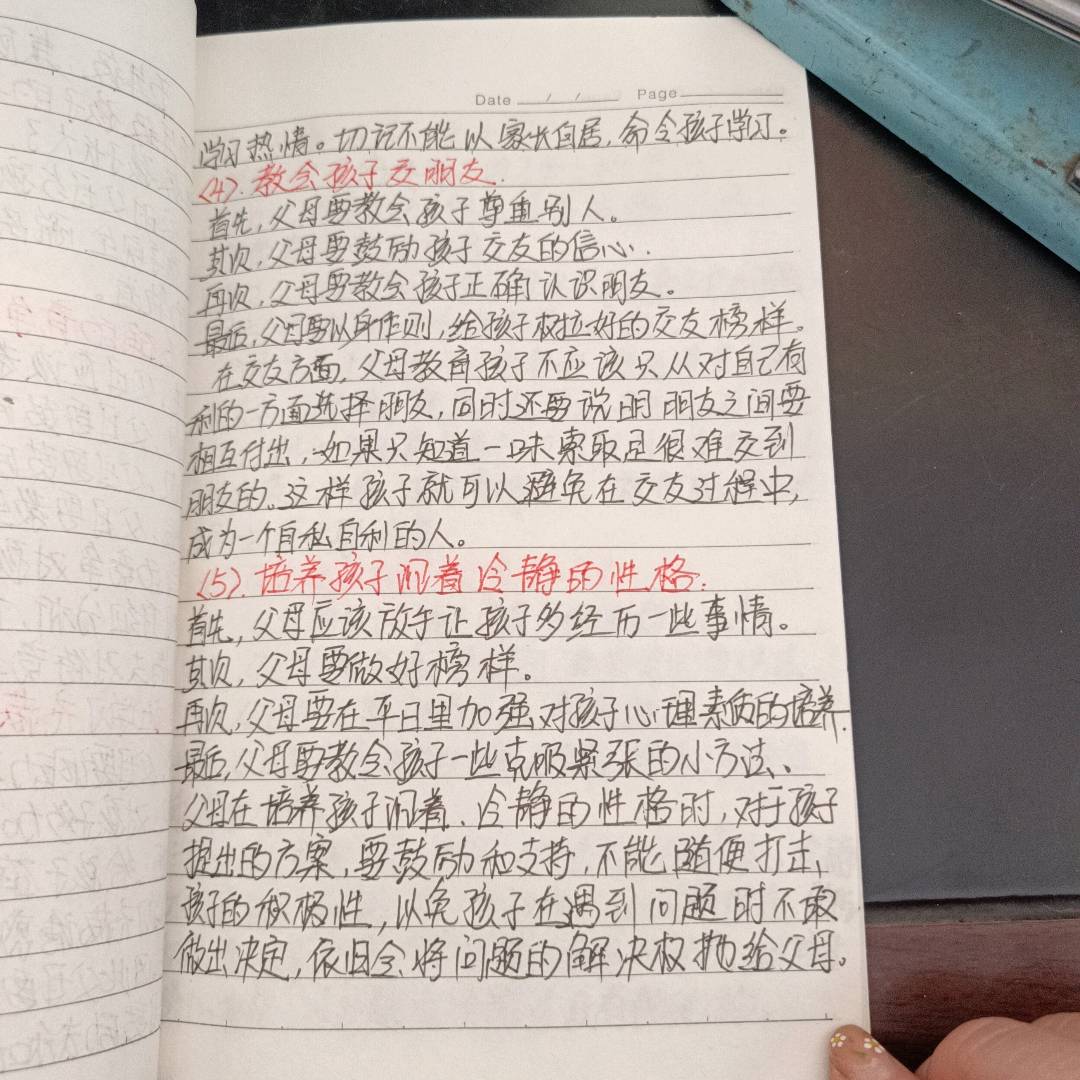 Date / / Page
学习热情。切记不能以家长自居,命令孩子学习。
(4).教会孩子交朋友.
首先,父母要教会孩子尊重别人。
其次,父母要鼓励孩子交友的信心.
再次,父母要教会孩子正确认识朋友。
最后,父母要以身作则,给孩子树拉好的交友榜样。
在交友方面,父母教育孩子不应该只从对自己有
利的一方面选择朋友,同时还要说明朋友之间要
相互付出,如果只知道一味索取且很难交到
朋友的。这样孩子就可以避免在交友过程中,
成为一个自私自利的人。
(5).培养孩子沉着冷静的性格.
首先,父母应该放手让孩子多经历一些事情。
其次,父母要做好榜样。
再次,父母要在平日里加强对孩子心理素质的培养.
最后,父母要教会孩子一些克服紧张的小方法、
父母在培养孩子沉着、冷静的性格时,对于孩子
提出的方案,要鼓励和支持,不能随便打击、
孩子的积极性,以免孩子在遇到问题时不敢
做出决定,依旧会将问题的解决权抛给父母。